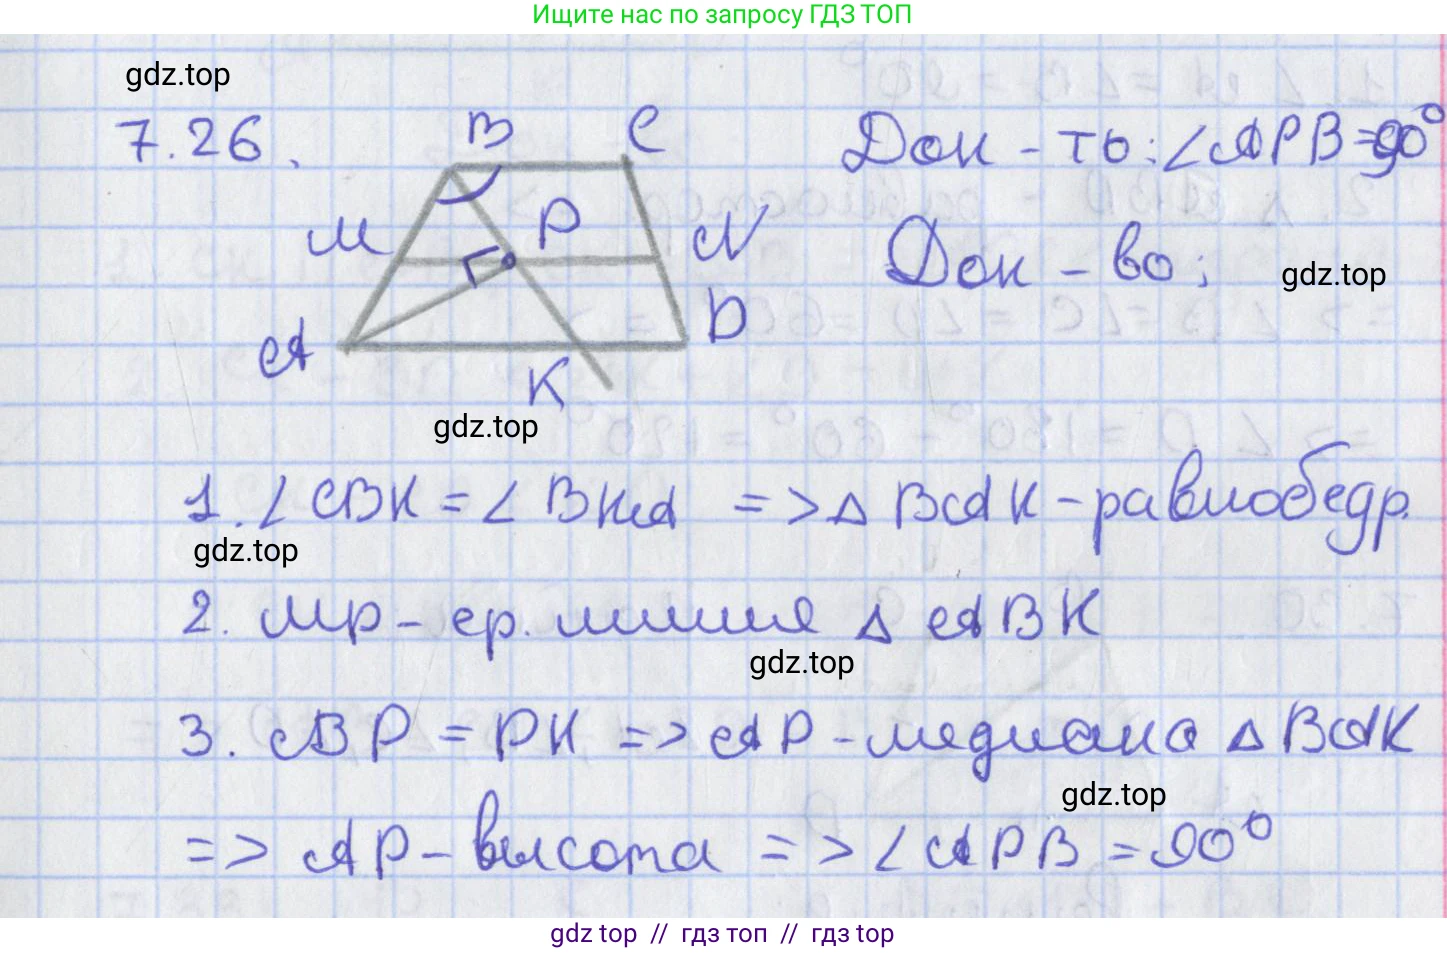 Ищите нас по запросу ГДЗ ТОП
gdz.top
7.26.
B C
Док-ть: ∠APB=90°
M P N
Док-во:
gdz.top
A K D
gdz.top
1. ∠CBK = ∠BKA => △ BAK - равнобедр.
gdz.top
2. MP - ср. линия △ ABK
gdz.top
3. BP = PK => AP - медиана △ BAK
gdz.top
=> AP - высота => ∠APB = 90°
gdz top // гдз топ // гдз top